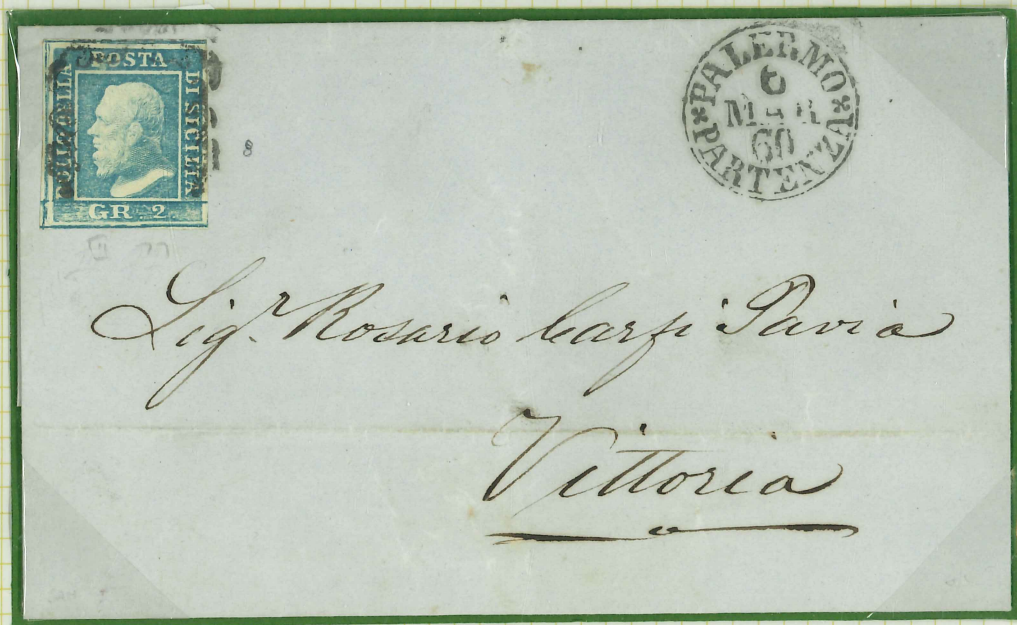 BOLLO DELLA
POSTA
DI SICILIA
GR. 2
8
PALERMO
6
MAR
60
PARTENZA
Sig.r Rosario Carfi Pavia
Vittoria